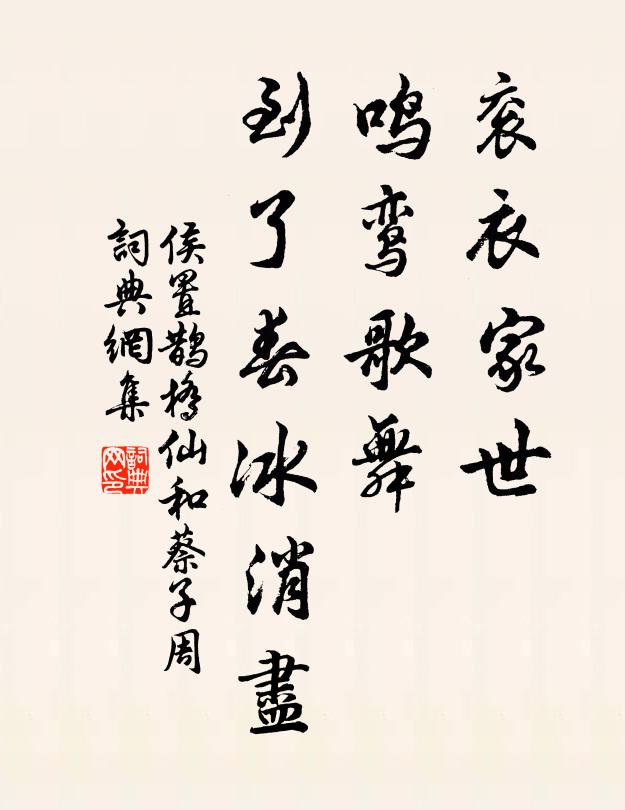 衮衣家世
鸣鸾歌舞
到了春冰消盡
侯置鹊橋仙和蔡子周
詞典網集
詞典
网印